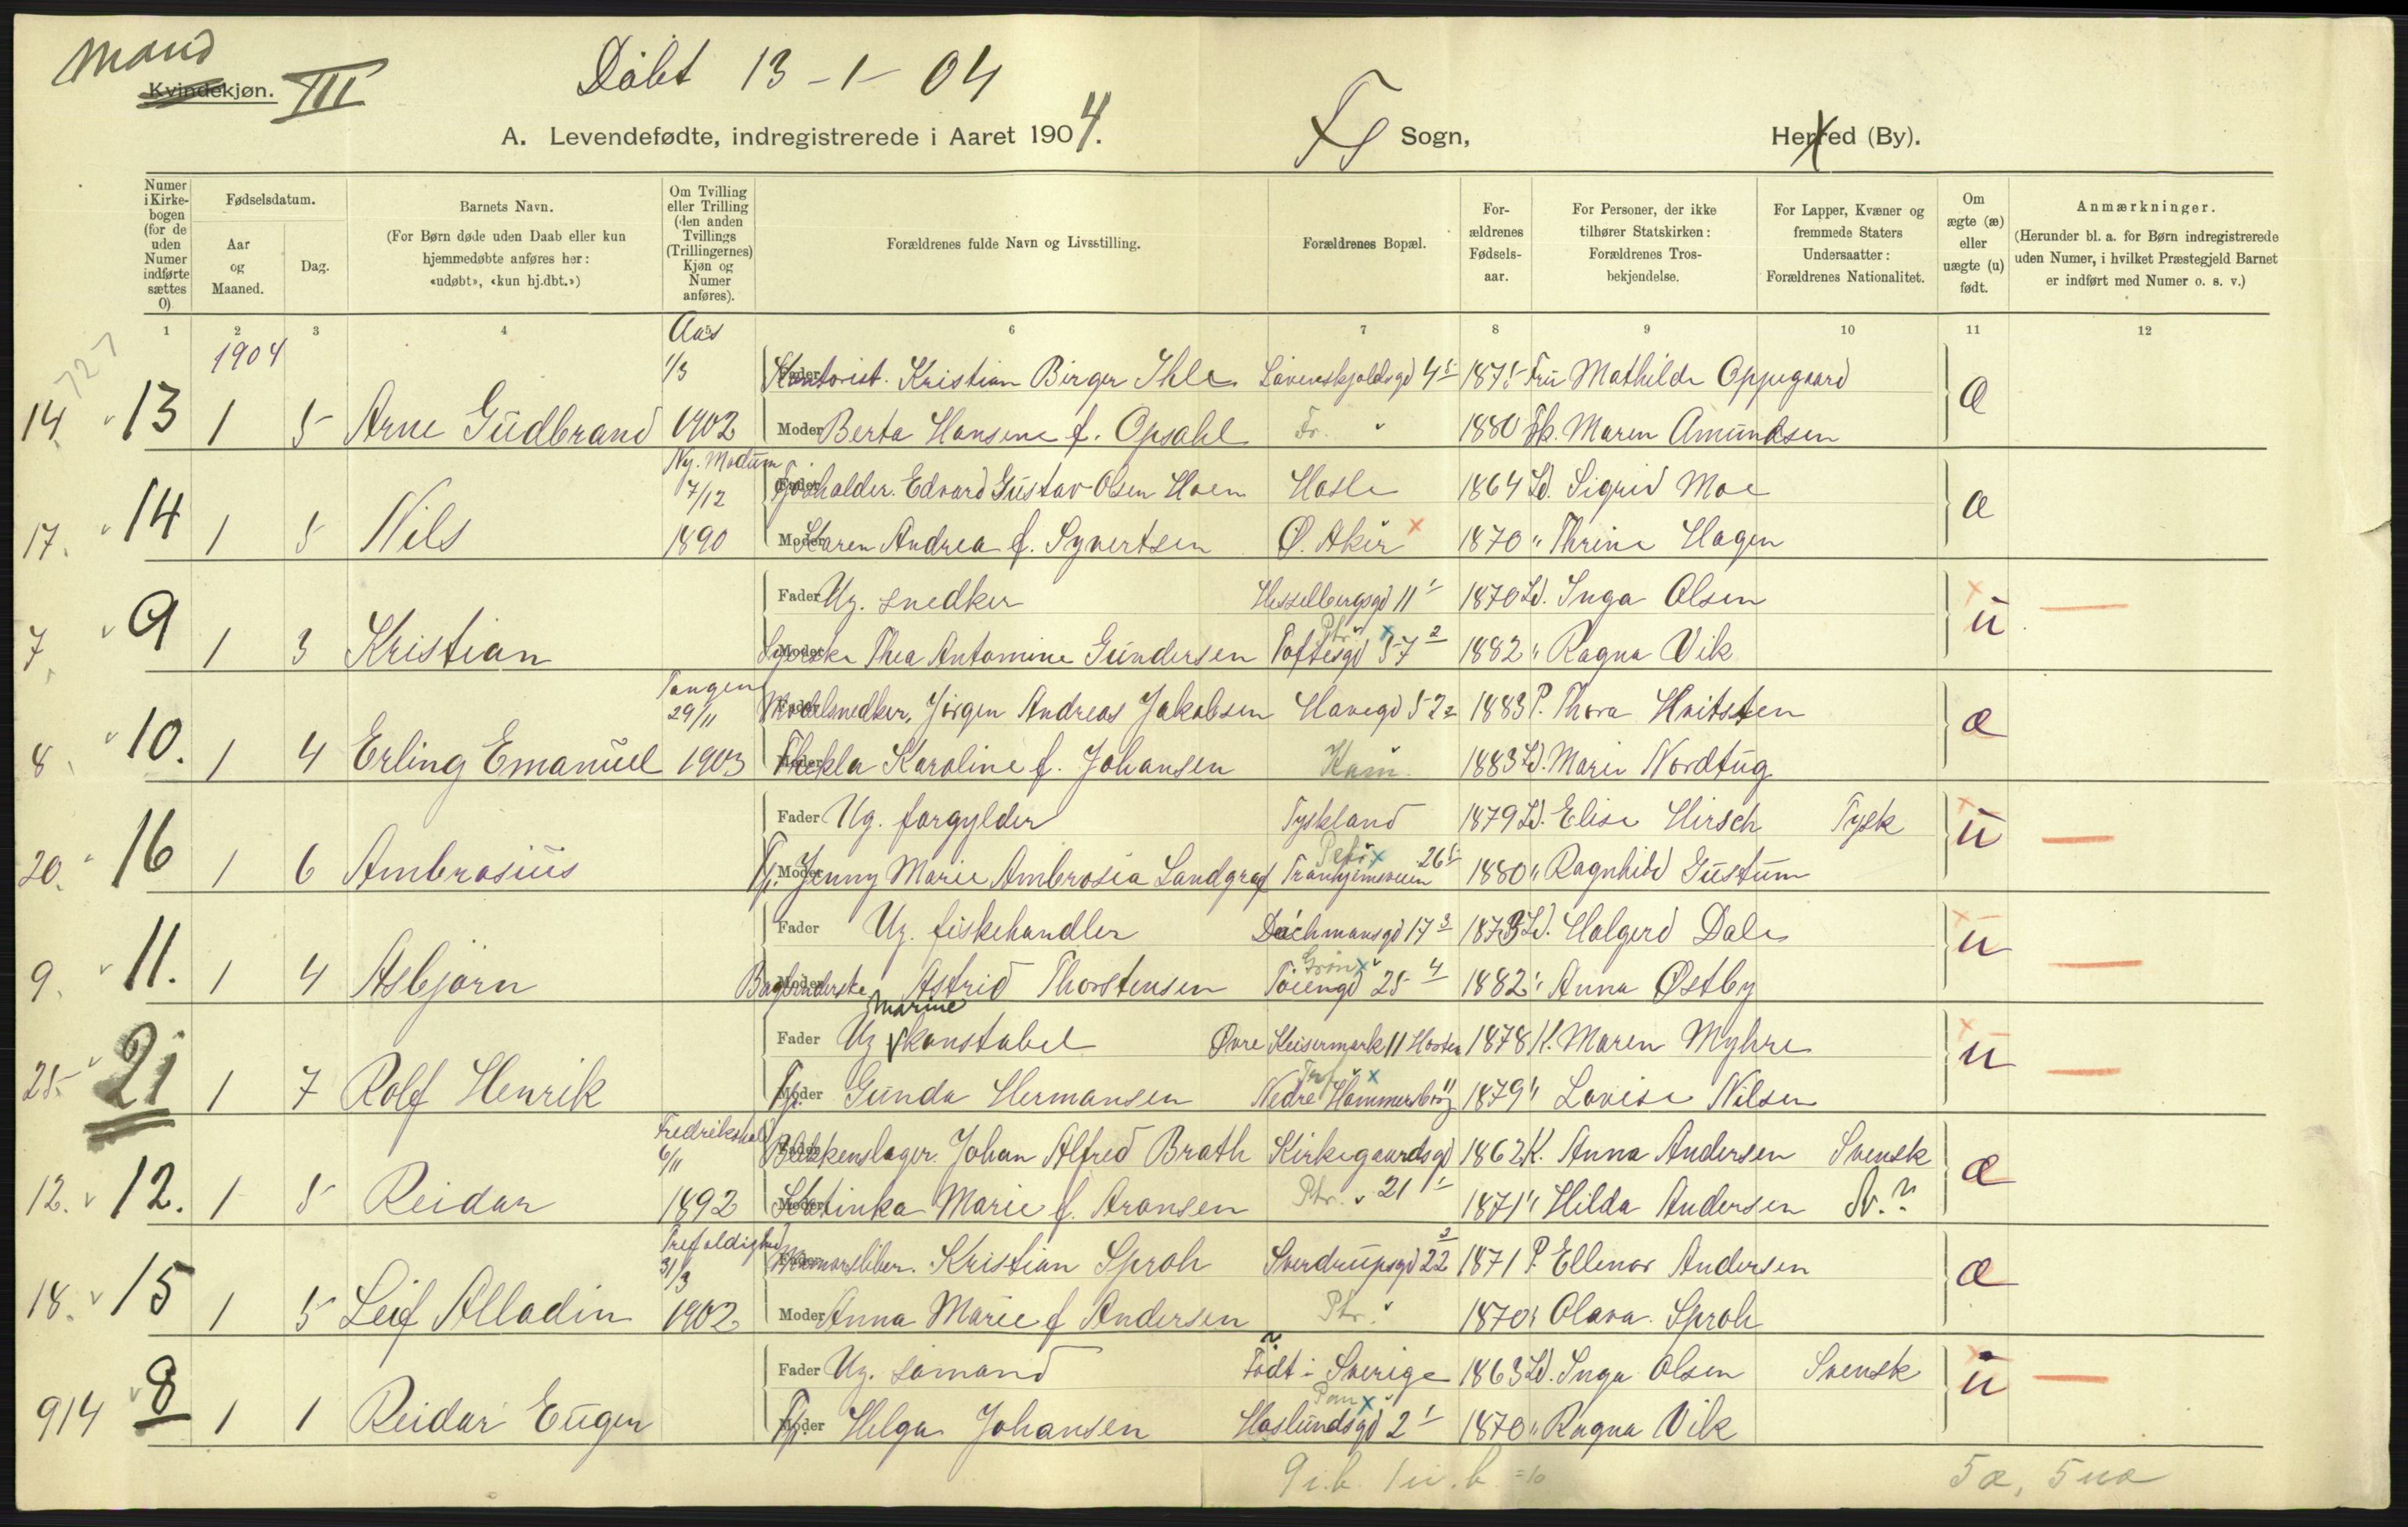 Mand
Kvindekjøn. III
Döbt 13-1-04
A. Levendefødte, indregistrerede i Aaret 1904. Sogn, Herred (By).
Numer i Kirkebogen (for de uden Numer indførte sættes 0)
Fødselsdatum.
Aar og Maaned.
Dag.
Barnets Navn.
(For Børn døde uden Daab eller kun hjemmedøbte anføres her: «udøbt», «kun hj.dbt.»)
Om Tvilling eller Trilling (den anden Tvillings (Trillingernes) Kjøn og Numer anføres).
Forældrenes fulde Navn og Livsstilling.
Forældrenes Bopæl.
Forældrenes Fødselsaar.
For Personer, der ikke tilhører Statskirken: Forældrenes Trosbekjendelse.
For Lapper, Kvæner og fremmede Staters Undersaatter: Forældrenes Nationalitet.
Om ægte (æ) eller uægte (u) født.
Anmærkninger.
(Herunder bl. a. for Børn indregistrerede uden Numer, i hvilket Præstegjeld Barnet er indført med Numer o. s. v.)
1 2 3 4 5 6 7 8 9 10 11 12
727 1904 Aas
1/3 Fader Kontorist. Kristian Birger Ihle Lövenskjoldsgd 4 1875 Fru Mathilde Oppegaard
14. 13 1 5 Arne Gudbrand 1902 Moder Berta Hansine f. Opsahl Fr. " 1880 Frk. Maren Amundsen æ
Ny. Modum
7/12 Fader Edvard Gustav Olsen Hoen Hasle 1864 Jd. Sigrid Moe
17. 14 1 5 Nils 1890 Moder Karen Andrea f. Syvertsen Ø. Aker x 1870 " Thrine Hagen æ
Fader Ug. snedker Hesselbergsgd 11 1870 Jd. Inga Olsen
7. 9 1 3 Kristian Moder Thea Antomine Gundersen Toftesgd 57 2 1882 " Ragna Vik u
Tangen
29/11 Fader Modelsnedker, Jörgen Andreas Jakobsen Havegd 5 2 1883 P. Thora Hvitsten
8. 10. 1 4 Erling Emanuel 1903 Moder Thekla Karoline f. Johansen Ham. 1883 Jd. Marie Nordtug æ
Fader Ug. forgylder Tyskland 1879 Jd. Elise Hirsch Tysk
20. 16 1 6 Ambrosius Moder Tj. Jenny Marie Ambrosia Landgraf Petr. x Tronhjemsveien 26 1880 " Ragnhild Gustum u
Fader Ug. fiskehandler Deichmansgd 17 3 1873 Jd. Halgerd Dale
9. 11. 1 4 Asbjörn Moder Bogbinderske Astrid Thorstensen Grön x Töiengd 25 4 1882 " Anna Østby u
Marine
Fader Ug konstabel Øvre Keisermark 11 Horten 1878 K. Maren Myhre
25. 21 1 7 Rolf Henrik Moder Tj. Gunda Hermansen Nedre Hammersborg 11 1879 " Lovise Nilsen u
Fredrikshald
6/11 Fader Blikkenslager. Johan Alfred Brath Kirkegaardsgd 1862 K. Anna Andersen Svensk
12. 12. 1 5 Reidar 1892 Moder Katinka Marie f. Aronsen Ptr. 21 1871 " Hilda Andersen N.? æ
Trefoldighed
31/3 Fader Marmorsliber. Kristian Sproh Sverdrupsgd 22 3 1871 P. Ellinor Andersen
18. 15 1 5 Leif Alladin 1902 Moder Anna Marie f Andersen Ptr. 1870 " Olava Sproh æ
Fader Ug. sömand Födt i Sverige 1863 Jd. Inga Olsen Svensk
914 8 1 1 Reidar Eugen Moder Tj. Helga Johansen x Haslundsgd 2 1870 " Ragna Vik u
9 i.b. 1 u.b. =10 5 æ, 5 uæ